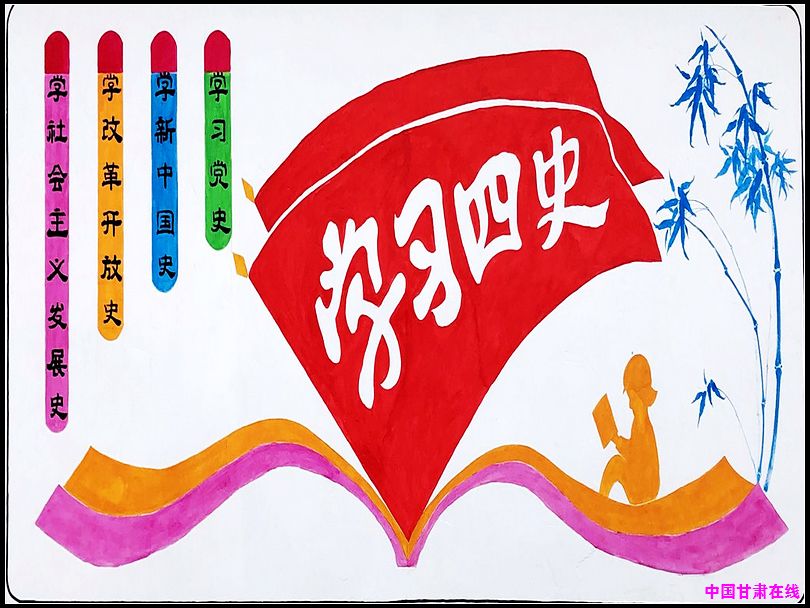 学社会主义发展史
学改革开放史
学新中国史
学习党史
学习四史
中国甘肃在线